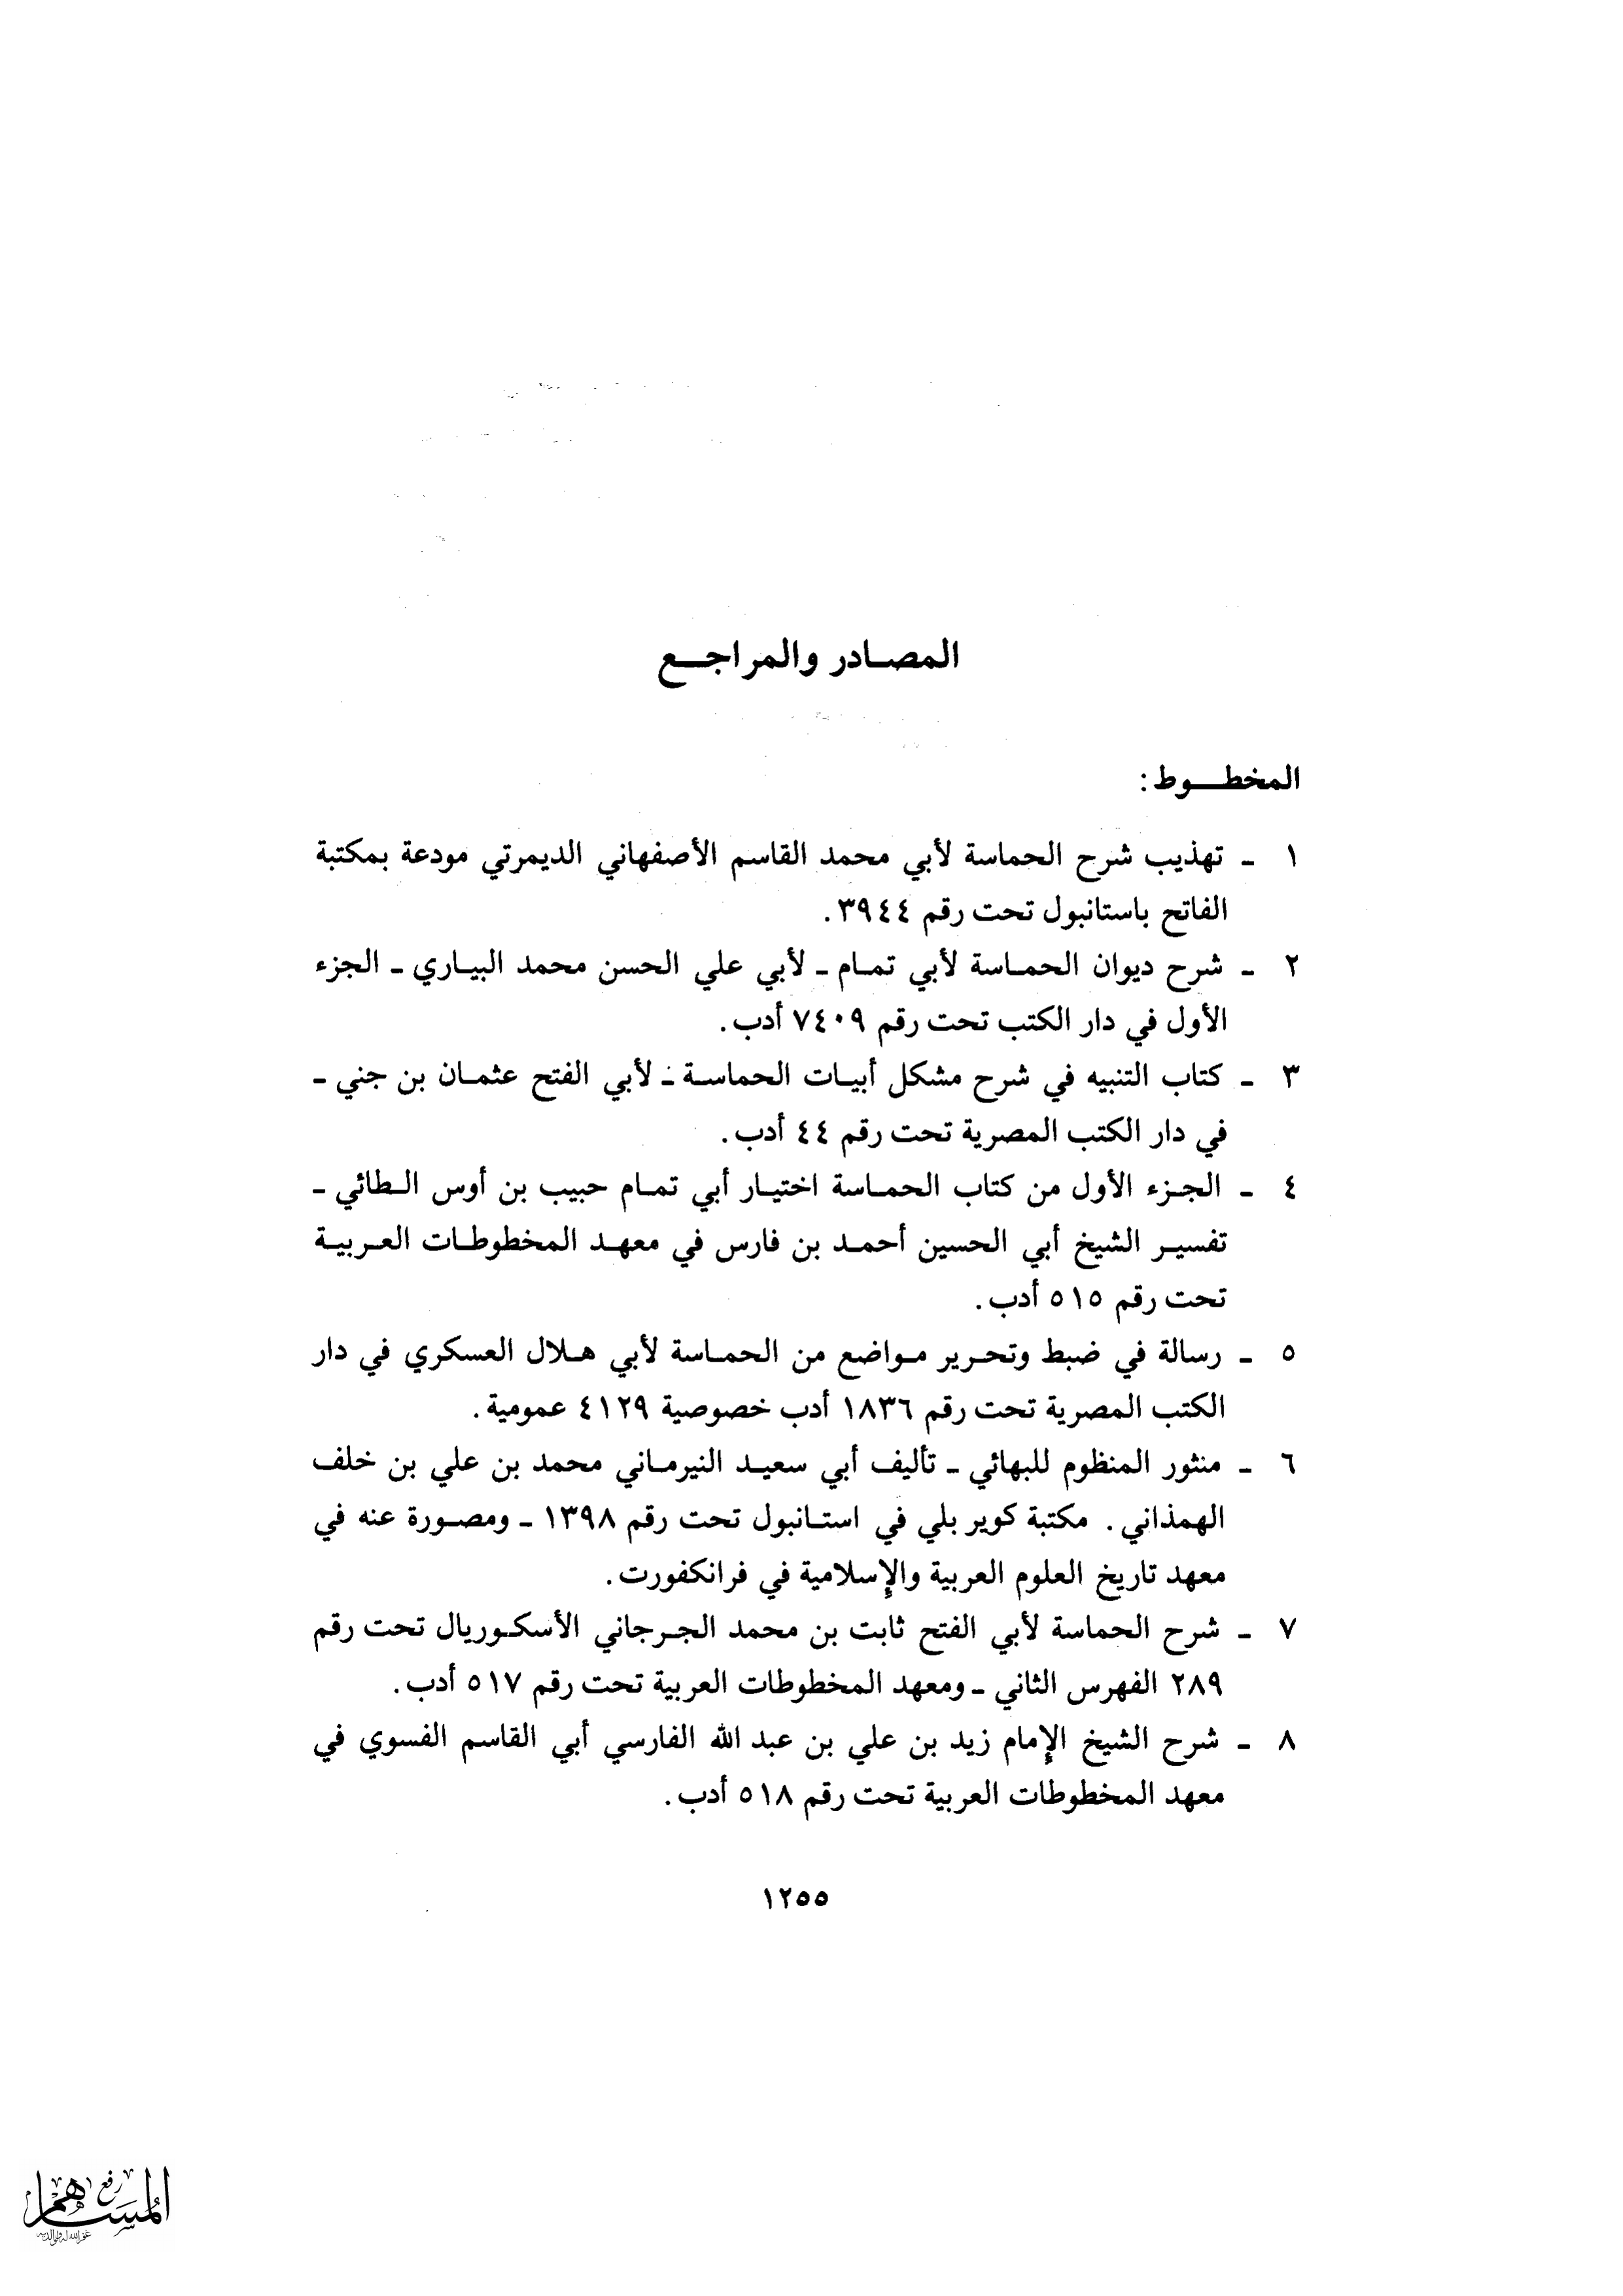 المصادر والمراجع
المخطوط:
١ - تهذيب شرح الحماسة لأبي محمد القاسم الأصفهاني الديمرتي مودعة بمكتبة
الفاتح باستانبول تحت رقم ٣٩٤٤.
٢ - شرح ديوان الحماسة لأبي تمام - لأبي علي الحسن محمد البياري - الجزء
الأول في دار الكتب تحت رقم ٧٤٠٩ أدب.
٣ - كتاب التنبيه في شرح مشكل أبيات الحماسة - لأبي الفتح عثمان بن جني -
في دار الكتب المصرية تحت رقم ٤٤ أدب.
٤ - الجزء الأول من كتاب الحماسة اختيار أبي تمام حبيب بن أوس الطائي -
تفسير الشيخ أبي الحسين أحمد بن فارس في معهد المخطوطات العربية
تحت رقم ٥١٥ أدب.
٥ - رسالة في ضبط وتحرير مواضع من الحماسة لأبي هلال العسكري في دار
الكتب المصرية تحت رقم ١٨٣٦ أدب خصوصية ٤١٢٩ عمومية.
٦ - منثور المنظوم للبهائي - تأليف أبي سعيد النيرماني محمد بن علي بن خلف
الهمذاني. مكتبة كوير بلي في استانبول تحت رقم ١٣٩٨ - ومصورة عنه في
معهد تاريخ العلوم العربية والإسلامية في فرانكفورت.
٧ - شرح الحماسة لأبي الفتح ثابت بن محمد الجرجاني الأسكوريال تحت رقم
٢٨٩ الفهرس الثاني - ومعهد المخطوطات العربية تحت رقم ٥١٧ أدب.
٨ - شرح الشيخ الإمام زيد بن علي بن عبد الله الفارسي أبي القاسم الفسوي في
معهد المخطوطات العربية تحت رقم ٥١٨ أدب.
١٢٥٥
رفع
المساهم
غفر الله له ولوالديه